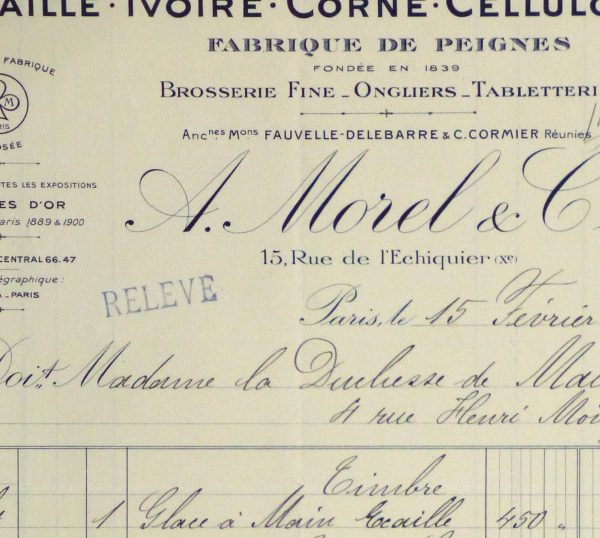 AILLE · IVOIRE · CORNE · CELLULO
FABRIQUE DE PEIGNES
FONDÉE EN 1839
BROSSERIE FINE _ ONGLIERS _ TABLETTERI
Anc.nes Mons FAUVELLE-DELEBARRE & C. CORMIER Réunies
FABRIQUE
M
RIS
OSÉE
TES LES EXPOSITIONS
ES D'OR
aris 1889 & 1900
CENTRAL 66.47
égraphique :
A _ PARIS
A. Morel & C
15, Rue de l'Echiquier (Xe)
RELEVÉ
Paris, le 15 Février
Doit Madame la Duchesse de Mai
4 rue Henri Moi
Timbre
1 Glace à Main Ecaille 450 "